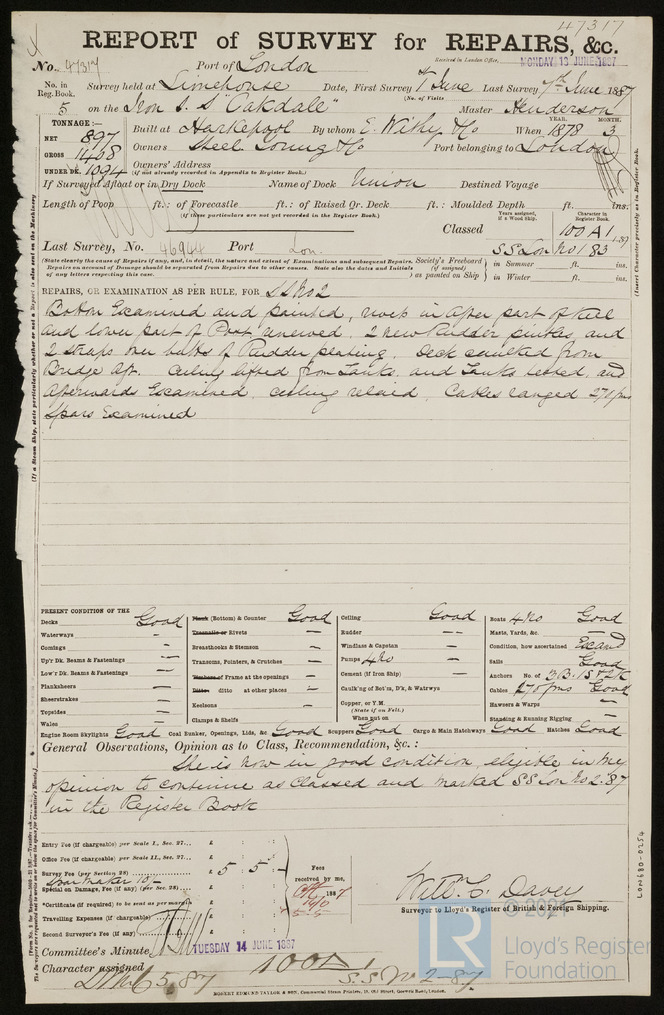 47317
REPORT of SURVEY for REPAIRS, &c.
No. 47317 Port of London Received in London Office, MONDAY 13 JUNE 1887
No. in Reg. Book. Survey held at Limehouse Date, First Survey 1st June Last Survey 7th June 1887
(No. of Visits)
5 on the Iron S.S. "Oakdale" Master Henderson
TONNAGE:— YEAR. MONTH.
NET 897 Built at Hartlepool By whom E. Withy & Co When 1878 3
GROSS 1408 Owners Steel Young & Co Port belonging to London
UNDER DK. 1094 Owners' Address
(if not already recorded in Appendix to Register Book.)
If Surveyed Afloat or in Dry Dock Name of Dock Union Destined Voyage
Length of Poop ft.: of Forecastle ft.: of Raised Qr. Deck ft.: Moulded Depth ft. ins.
(if these particulars are not yet recorded in the Register Book.)
Years assigned, if a Wood Ship. Character in Register Book.
Classed 100 A1
Last Survey, No. 46944 Port Lon S.S Lon No 1 83 1.87
(State clearly the causes of Repairs if any, and, in detail, the nature and extent of Examinations and subsequent Repairs.
Repairs on account of Damage should be separated from Repairs due to other causes. State also the dates and Initials
of any letters respecting this case.)
Society's Freeboard (if assigned) as painted on Ship in Summer ft. ins.
in Winter ft. ins.
REPAIRS, OR EXAMINATION AS PER RULE, FOR SS No 2
Bottom Examined and painted, rivets in After part of Keel
and lower part of Post renewed, 2 new Rudder pintles, and
2 Straps over butts of Rudder plating. Deck caulked from
Bridge Aft. Ceiling lifted from Tanks, and Tanks tested, and
Afterwards Examined, ceiling relaid, Cables ranged 270 fms
Spars Examined
PRESENT CONDITION OF THE
Decks Good
Waterways —
Comings —
Up'r Dk. Beams & Fastenings —
Low'r Dk. Beams & Fastenings —
Planksheers —
Sheerstrakes —
Topsides —
Wales —
Plank (Bottom) & Counter Good
Treenails or Rivets —
Breasthooks & Stemson —
Transoms, Pointers, & Crutches —
Timbers of Frame at the openings —
Ditto ditto at other places —
Keelsons —
Clamps & Shelfs —
Ceiling Good
Rudder —
Windlass & Capstan —
Pumps 4 No —
Cement (if Iron Ship) —
Caulk'g of Bot'm, D'k, & Watrwys
Copper, or Y.M.
(State if on Felt.)
When put on
Boats 4 No Good
Masts, Yards, &c. —
Condition, how ascertained Examd
Sails Good
Anchors No. of 3 B. 1 S & 2 K
Cables 270 fms Good
Hawsers & Warps —
Standing & Running Rigging —
Engine Room Skylights Good Coal Bunker, Openings, Lids, &c. Good Scuppers Good Cargo & Main Hatchways Good Hatches Good
General Observations, Opinion as to Class, Recommendation, &c. :
She is now in good condition, eligible in my
opinion to continue as Classed and marked SS Lon No 2.'87
in the Register Book
Entry Fee (if chargeable) per Scale I., Sec. 27... £ : :
Office Fee (if chargeable) per Scale II., Sec. 27... £ : :
Survey Fee (per Section 28) £ 5 : 5 :
Special on Damage, Fee (if any) (per Sec. 28) £ : :
*Certificate (if required) to be sent as per margin £ : :
Travelling Expenses (if chargeable) £ : :
Second Surveyor's Fee (if any) £ : :
Fees received by me, 1887
Willm. C. Davey
Surveyor to Lloyd's Register of British & Foreign Shipping.
Committee's Minute TUESDAY 14 JUNE 1887
Character assigned 100 A 1
5,87 S.S. No 2-87
ROBERT EDMUND TAYLOR & SON, Commercial Steam Printers, 19, Old Street, Goswell Road, London.
(If a Steam Ship, state particularly whether or not a Report is also sent on the Machinery
(Insert Character precisely as in Register Book.
LON680-0254
© 2021
LR
Lloyd's Register
Foundation